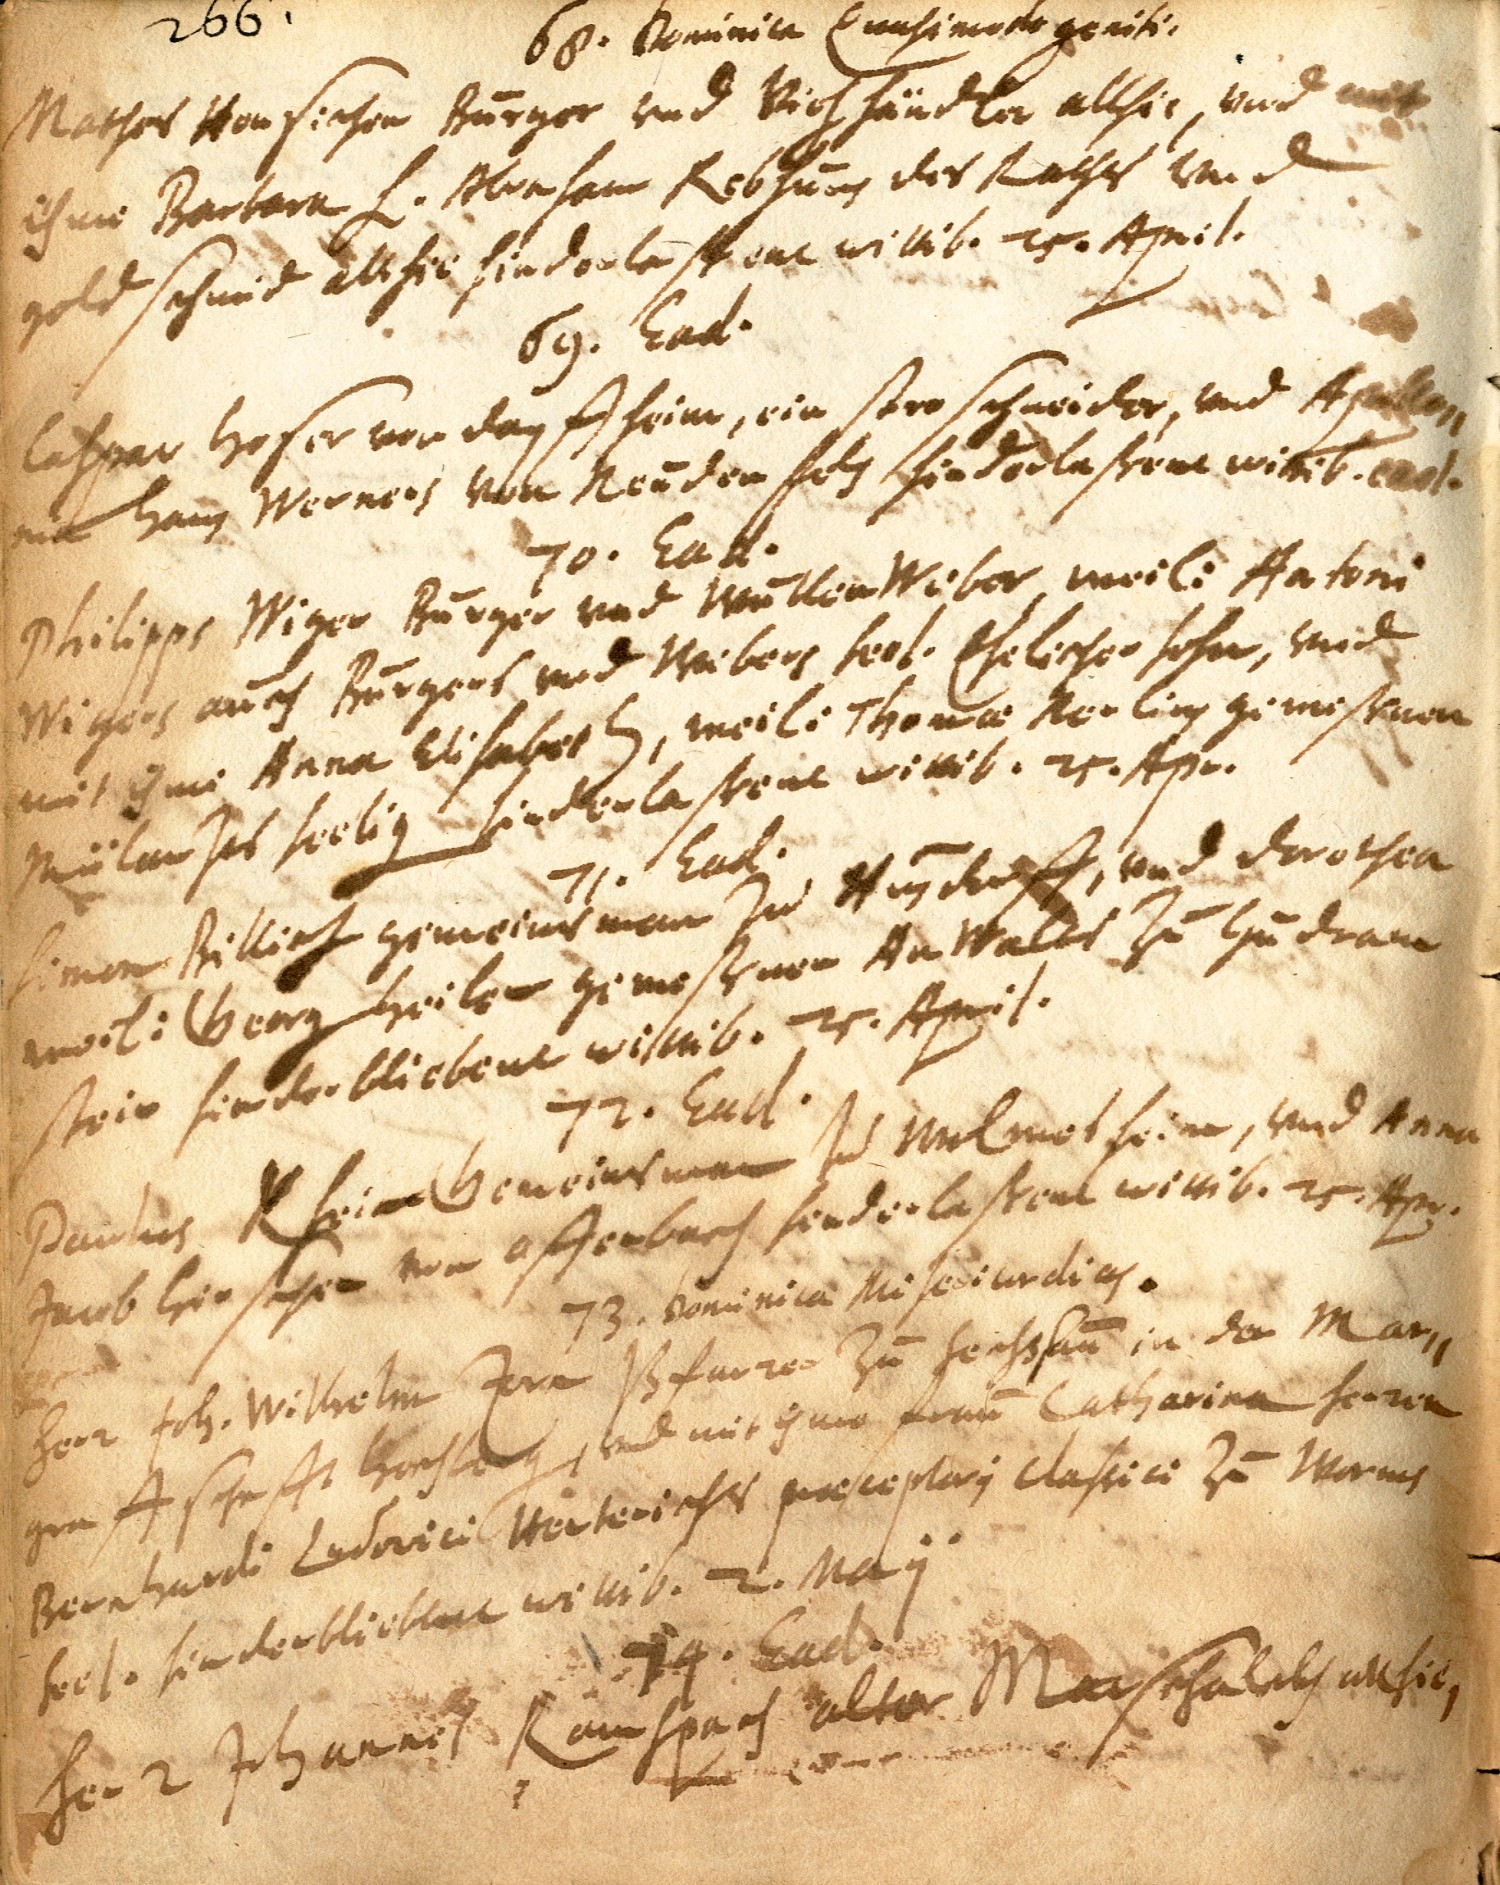 266.
68. Dominica Quasimodogeniti.
Mathes Burger vnd Viehhändler allhie, vnd mit
ihme Barbara H. Abraham Rebhuns des Raths vnd
goldschmid allhie hinderlaßene wittib. 25. April.
69. Ead.
Caspar Hoser von dapfheim, ein stroschneider, vnd Apollo„
nia Hans Werners von hinderlaßene wittib. ead.
70. Ead.
Philipps Wiger Burger vnd WullenWeber, weil: Antoni
Wigers auch Burgers vnd Webers seel. Ehelicher sohn, vnd
mit ihme Anna Elisabeth, weil: Thomæ gewesenen
seelig hinderlaßene wittib. 25. Apr.
71. Ead.
Simon Billich gemeinsman zu, vnd dorothea
weil: Georg gewesenen AnWalts zu
stein hinderbliebene wittib. 25. April.
72. Ead.
Paulus Gemeinsman zu, vnd Anna
Jacob von offenbach hinderlaßene wittib. 25. Apr.
73. Dominica Misericordias.
Herr Joh. Wilhelm Zorn Pfarrer zu in der Mar„
graffschafft Hochberg, vnd mit ihme fraw Catharina herren
Bernhardi Ludovici præceptorij classici zu Worms
seel. hinderbliebene wittib. 2. Maij.
74. Ead.
Herr Johannes Ramspach alter allhie,